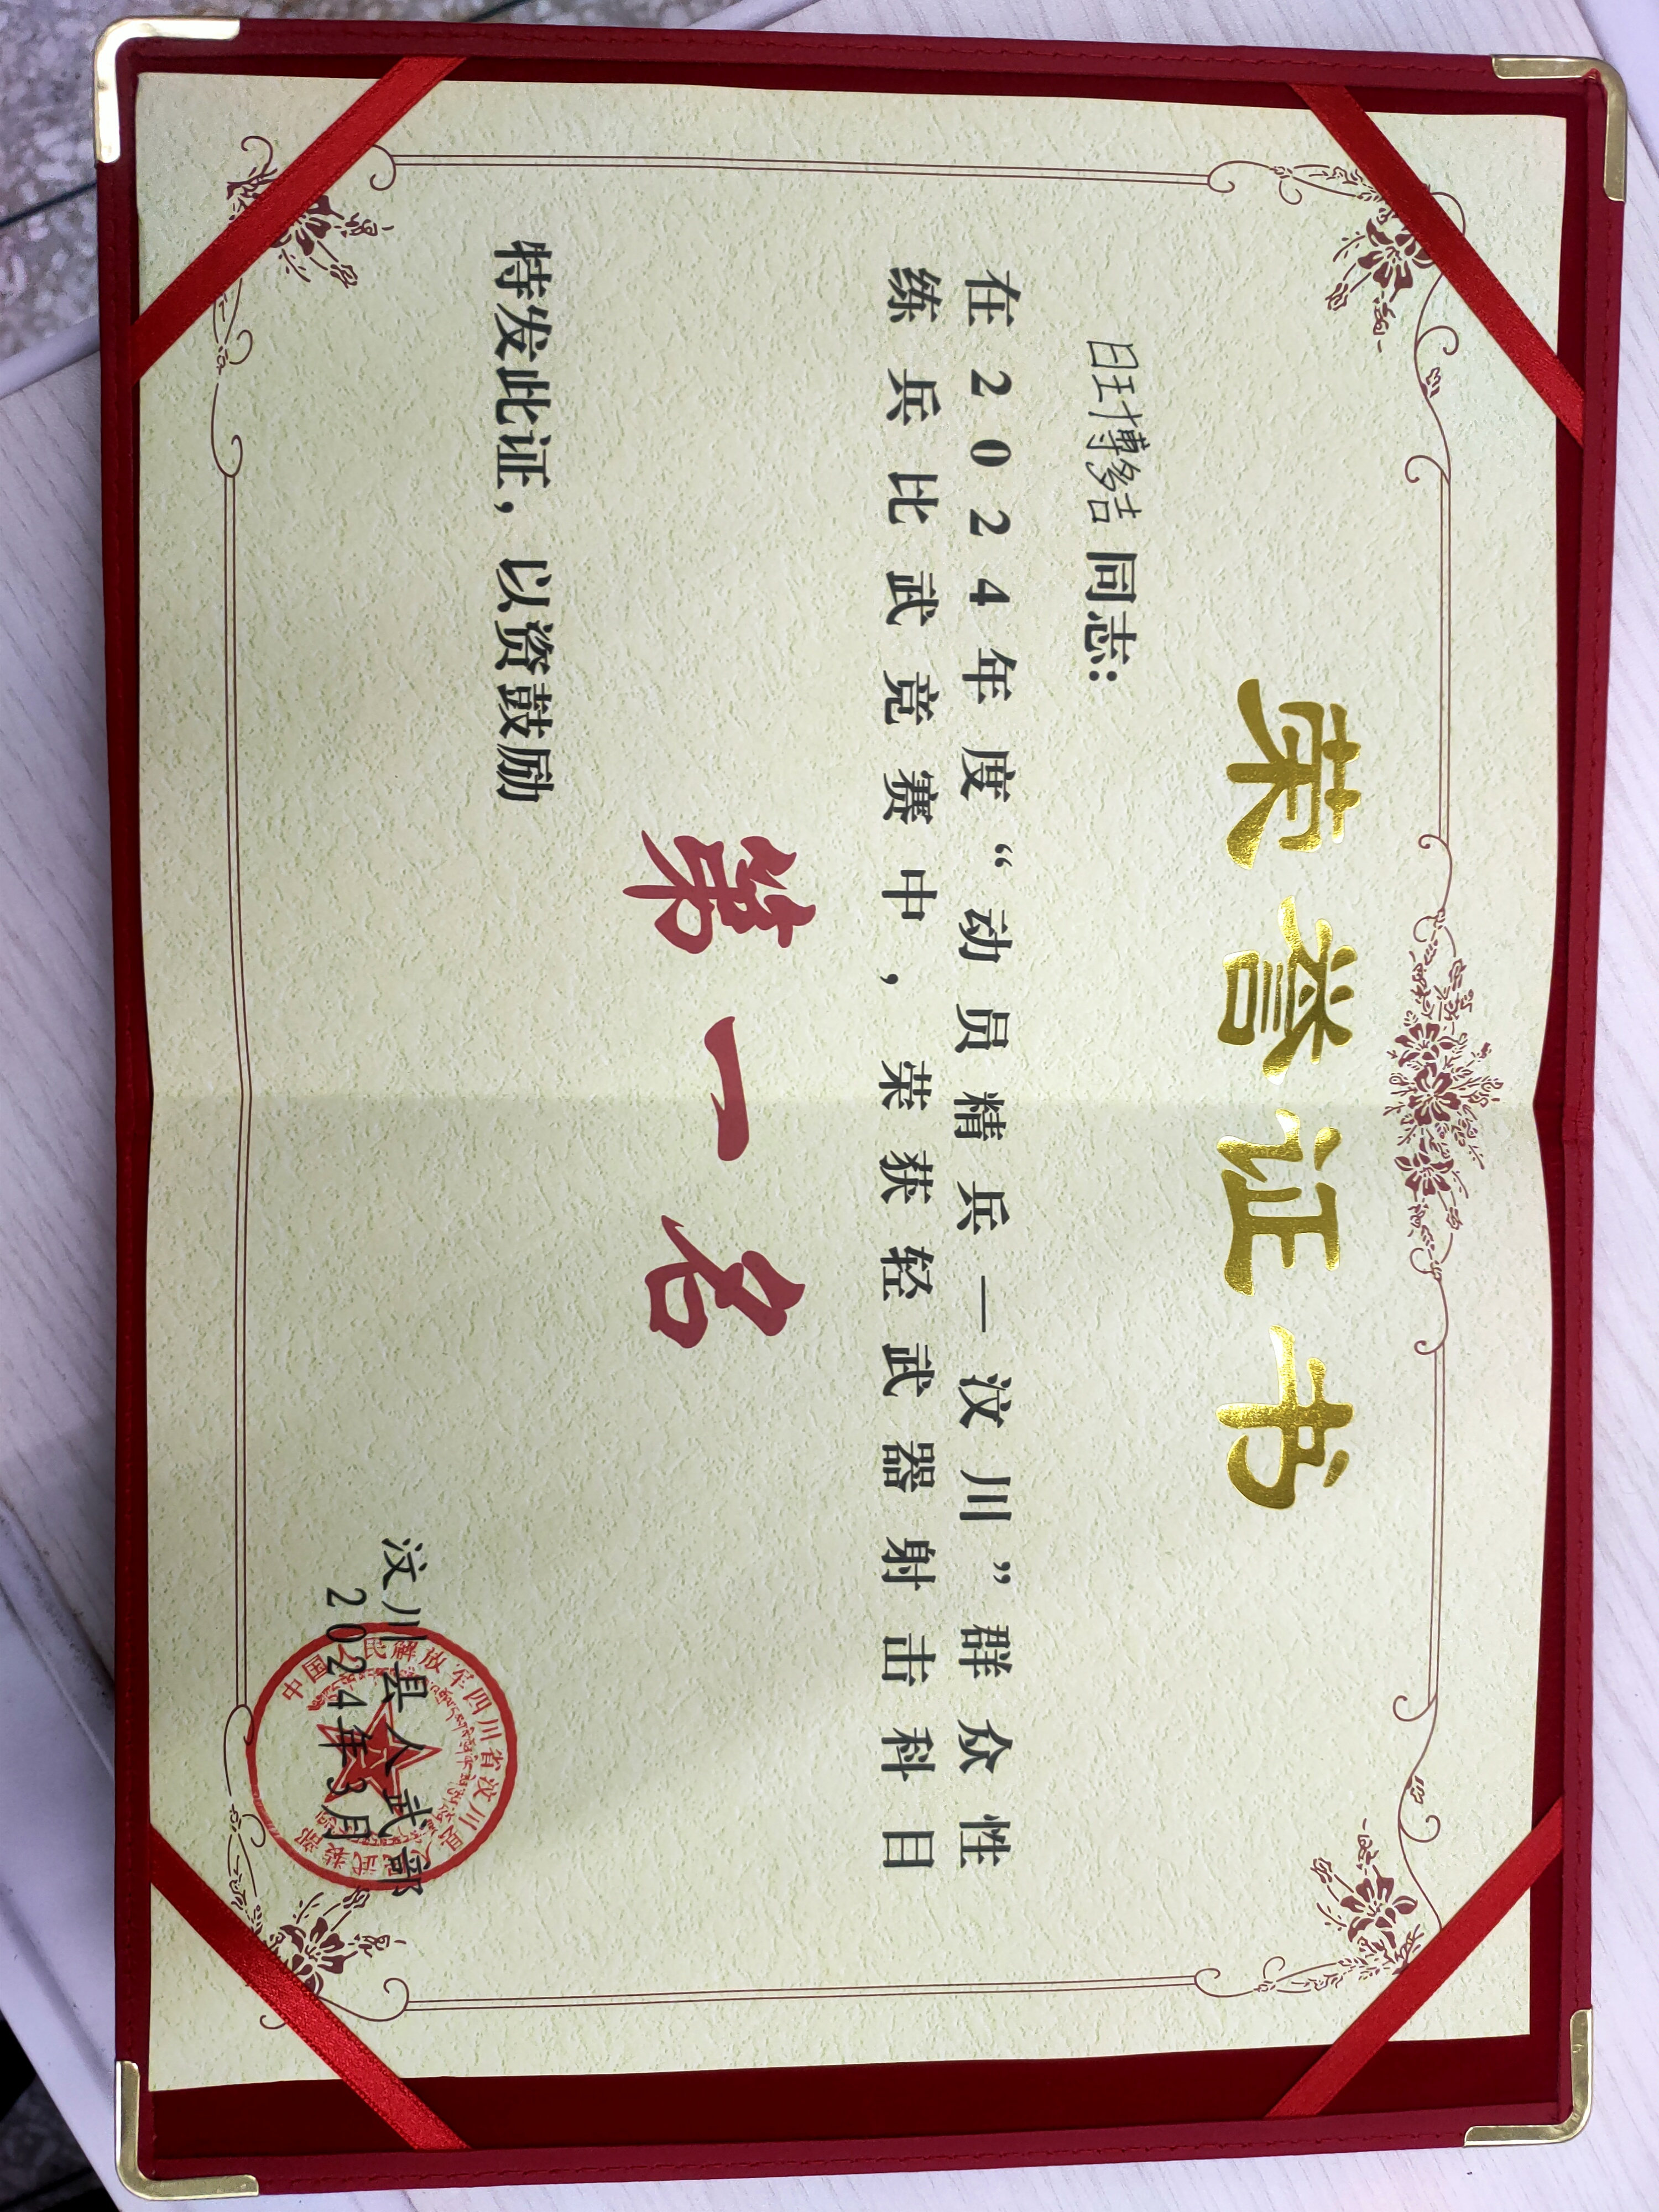 荣誉证书
日玨博多吉 同志:
在2024年度“动员精兵—汶川”群众性
练兵比武竞赛中，荣获轻武器射击科目
第一名
特发此证，以资鼓励
汶川县人武部
2024年3月
中国人民解放军四川省汶川县人民武装部